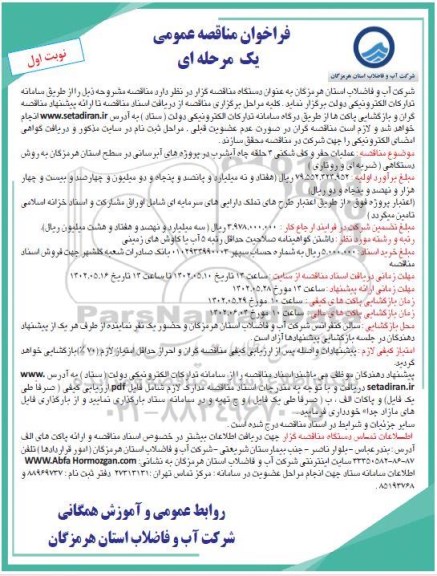 فراخوان مناقصه عمومی
یک مرحله ای
نوبت اول
شرکت آب و فاضلاب استان هرمزگان
شرکت آب و فاضلاب استان هرمزگان به عنوان دستگاه مناقصه گزار در نظر دارد مناقصه مشروحه ذیل را از طریق سامانه
تدارکات الکترونیکی دولت برگزار نماید. کلیه مراحل برگزاری مناقصه از دریافت اسناد مناقصه تا ارائه پیشنهاد مناقصه
گران و بازگشایی پاکت ها از طریق درگاه سامانه تدارکات الکترونیکی دولت (ستاد) به آدرس www.setadiran.ir انجام
خواهد شد و لازم است مناقصه گران در صورت عدم عضویت قبلی، مراحل ثبت نام در سایت مذکور و دریافت گواهی
امضای الکترونیکی را جهت شرکت در مناقصه محقق سازند.
موضوع مناقصه: عملیات حفر و کف شکنی ۳ حلقه چاه آبشرب در پروژه های آبرسانی در سطح استان هرمزگان به روش
دستگاهی (ضربه ای و روتاری)
مبلغ برآورد اولیه: ۷۹.۵۵۲.۴۲۴.۹۵۲ ریال (هفتاد و نه میلیارد و پانصد و پنجاه و دو میلیون و چهارصد و بیست و چهار
هزار و نهصد و پنجاه و دو ریال)
(اعتبار پروژه فوق از طریق اعتبار طرح های تملک دارایی های سرمایه ای شامل اوراق مشارکت و اسناد خزانه اسلامی
تامین میگردد)
مبلغ تضمین شرکت در فرایند ارجاع کار: ۳.۹۷۸.۰۰۰.۰۰۰ ریال (سه میلیارد و نهصد و هفتاد و هشت میلیون ریال).
رتبه و رشته مورد نظر: داشتن گواهینامه صلاحیت حداقل رتبه ۵ آب یا کاوش های زمینی
مبلغ خرید اسناد: ۵.۰۰۰.۰۰۰ ریال به شماره حساب سپهر بانک صادرات شعبه گلشهر جهت فروش اسناد
مناقصه
مهلت زمانی دریافت اسناد مناقصه از سایت: ساعت ۱۳ تاریخ ۱۴۰۲.۰۵.۱۰ تا ساعت ۱۳ تاریخ ۱۴۰۲.۰۵.۱۶
مهلت زمانی ارائه پیشنهاد: ساعت ۱۳ مورخ ۱۴۰۲.۰۵.۲۸
زمان بازگشایی پاکت های کیفی: ساعت ۱۰ مورخ ۱۴۰۲.۰۵.۲۹
زمان بازگشایی پاکت های مالی: ساعت ۱۰ مورخ ۱۴۰۲.۰۶.۰۴
محل بازگشایی: سالن کنفرانس شرکت آب و فاضلاب استان هرمزگان و حضور یک نفر نماینده از طرف هر یک از پیشنهاد
دهندگان در جلسه بازگشایی پیشنهادها آزاد است.
امتیاز کیفی لازم: پیشنهادات واصله پس از ارزیابی کیفی مناقصه گران و احراز حداقل امتیاز لازم (۷۰٪) بازگشایی خواهد
گردید.
پیشنهاد دهندگان موظف می باشند اسناد مناقصه را از سامانه تدارکات الکترونیکی دولت (ستاد) به آدرس www.
setadiran.ir دریافت و با توجه به مندرجات اسناد مناقصه مدارک لازم شامل فایل pdf ارزیابی کیفی (صرفا طی
یک فایل) و پاکات الف، ب (صرفا طی یک فایل) و ج تهیه و در سامانه ستاد بارگزاری نمایند و از بارگزاری فایل
های مازاد جدا خودداری فرمایند.
سایر جزئیات و شرایط در اسناد مناقصه درج شده است.
اطلاعات تماس دستگاه مناقصه گزار جهت دریافت اطلاعات بیشتر در خصوص اسناد مناقصه و ارائه پاکت های الف
آدرس: بندرعباس - بلوار ناصر - جنب بیمارستان شریعتی - شرکت آب و فاضلاب استان هرمزگان (امور قراردادها) تلفن
۸۷-۳۳۳۵۰۵۸۲-۸۶ سایت اینترنتی شرکت آب و فاضلاب استان هرمزگان به نشانی: WWW.Abfa Hormozgan.com
اطلاعات سامانه ستاد جهت انجام مراحل عضویت در سامانه: مرکز تماس تهران: ۲۷۳۱۳۱۳۱ دفتر ثبت نام: ۸۸۹۶۹۷۳۷ و
۸۵۱۹۳۷۶۸.
روابط عمومی و آموزش همگانی
شرکت آب و فاضلاب استان هرمزگان